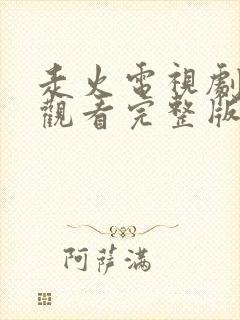 永火電視劇
觀看完整版
阿薩滿